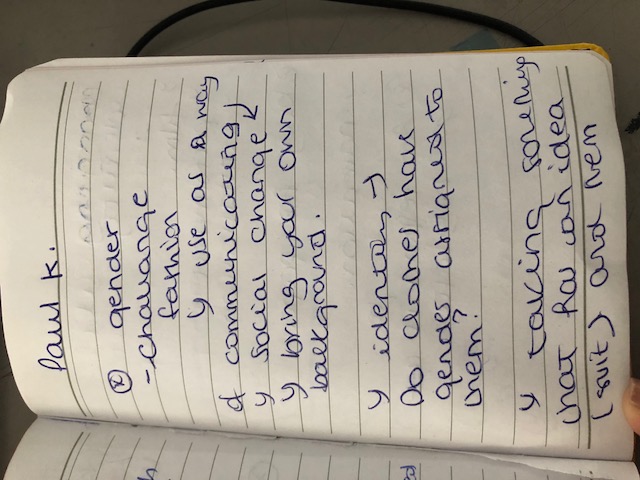 Paul K.
gender
- challange
fashion
y use as a way
of communicating
y social change
y bring your own
background.
y identity →
Do clothes have
gender assigned to
them?
y taking something
that has an idea
(suit) and then